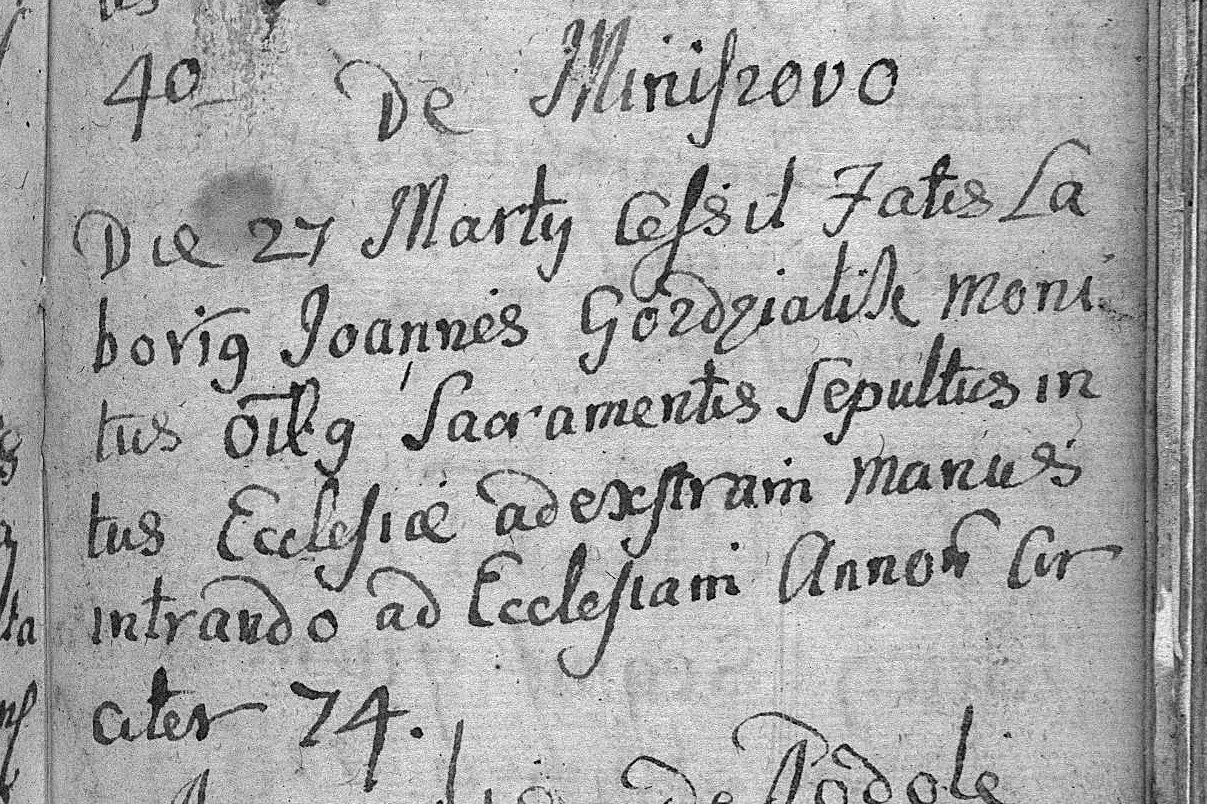 40 De Miniszovo
Die 27 Martij Cessit Fatis La
boriq Joannes Gordzialik moni
tus Oibq Sacramentis Sepultus in
tus Ecclesiæ adexstram manus
intrando ad Ecclesiam Annoru Cir
citer 74.
de Podole